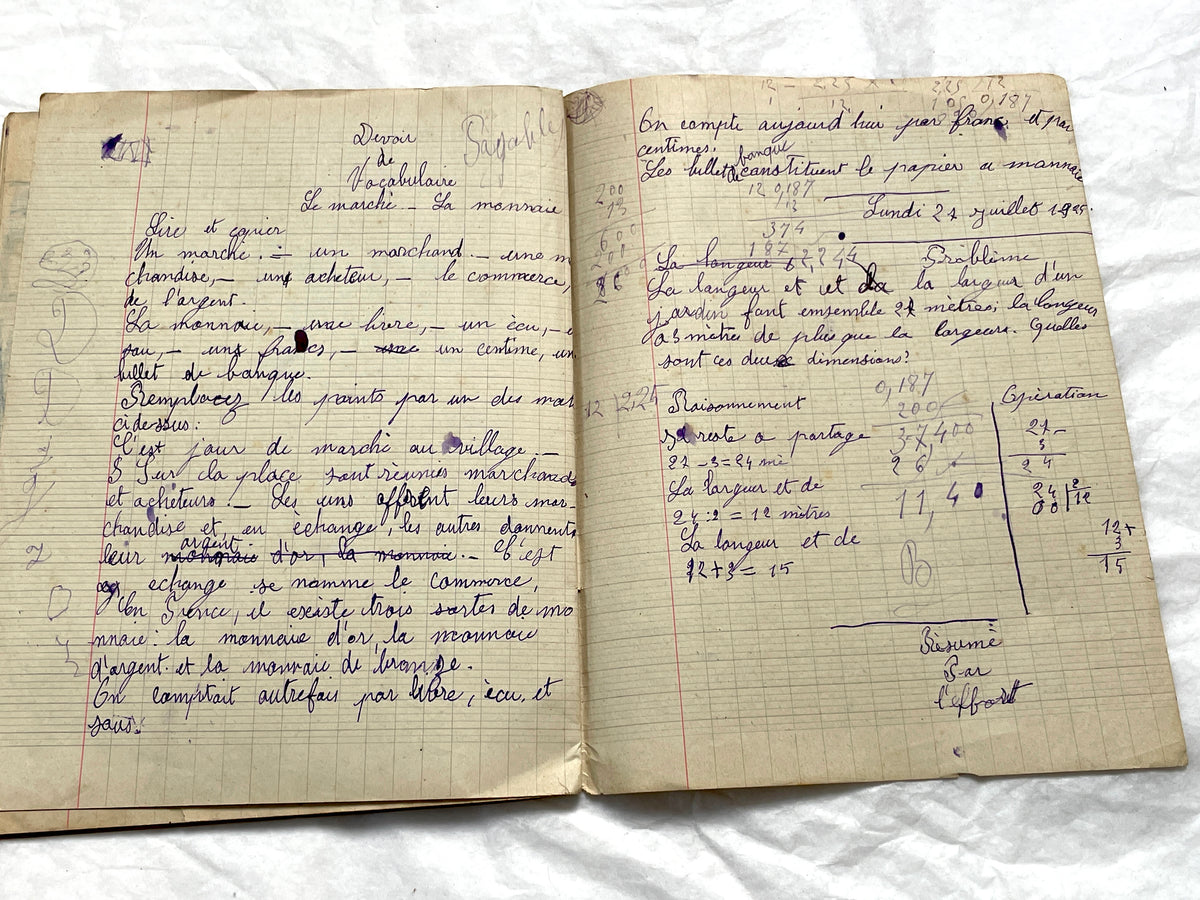 Devoir
de
Vocabulaire
Le marché - La monnaie
Lire et copier
Un marché - un marchand - une m
chandise, - un acheteur, - le commerce,
de l'argent.
La monnaie, - une livre, - un écu, -
sou, - un francs, - un centime, un
billet de banque.
Remplacez les points par un des mot
cidessus:
C'est jour de marché au village. -
Sur la place sont réunies marchands
et acheteurs. - Les uns offrent leurs mar-
chandise et, en échange, les autres donnent
leur argent d'or, la monnaie. - C'est
echange se nomme le commerce,
En France, il existe trois sortes de mo
nnaie: la monnaie d'or, la monnaie
d'argent et la monnaie de bronze.
On comptait autrefois par livre, écu, et
sous.
On compte aujourd'hui par franc et par
centimes.
Les billet de banque constituent le papier a monnaie
Lundi 27 juillet 1925.
Problème
La longeur et et la la largeur d'un
jardin font ensemble 27 mètres; la longeur
a 3 mètres de plus que la largeurs. Quelles
sont ces deux dimensions?
Raisonnement
Opération
reste a partage
27 - 3 = 24 mè
La largeur et de
24 : 2 = 12 mètres
La longeur et de
12 + 3 = 15
27 -
3
24
24 | 2
00 | 12
12 +
3
15
0,187
200
37400
26
11,4
12 0,187
13
374
187
2,244
200
13
600
12 | 2,25
B
Résumé
Par
l'effort